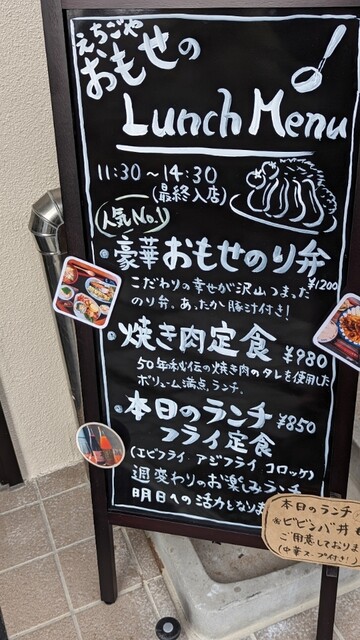 えちごや
おもせの
Lunch Menu
11:30～14:30
(最終入店)
人気No.1
豪華おもせのり弁
¥1200
こだわりの幸せが沢山つまった
のり弁、あったか豚汁付き!
焼き肉定食 ¥980
50年秘伝の焼き肉のタレを使用した
ボリューム満点ランチ。
本日のランチ ¥850
フライ定食
(エビフライ アジフライ コロッケ)
週変わりのお楽しみランチ
明日への活力となりま
本日のランチ
ビビンバ丼も
ご用意しておりま
(中華スープ付き!)